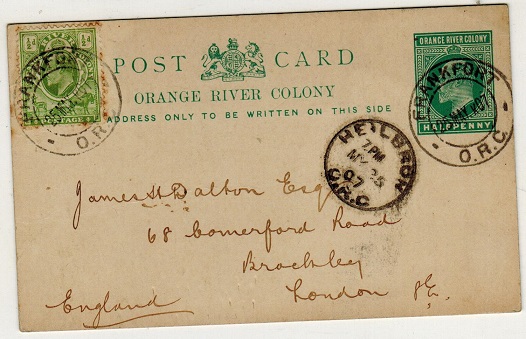 ½d ½d
POSTAGE
POST CARD
ORANGE RIVER COLONY
ADDRESS ONLY TO BE WRITTEN ON THIS SIDE
ORANGE RIVER COLONY
HALFPENNY
FRANKFORT
O.R.C.
FRANKFORT
O.R.C.
HEILBRON
7PM
MY 25
07
O.R.C
James H Dalton Esq
68 Comerford Road
Brockley
London S.E.
England